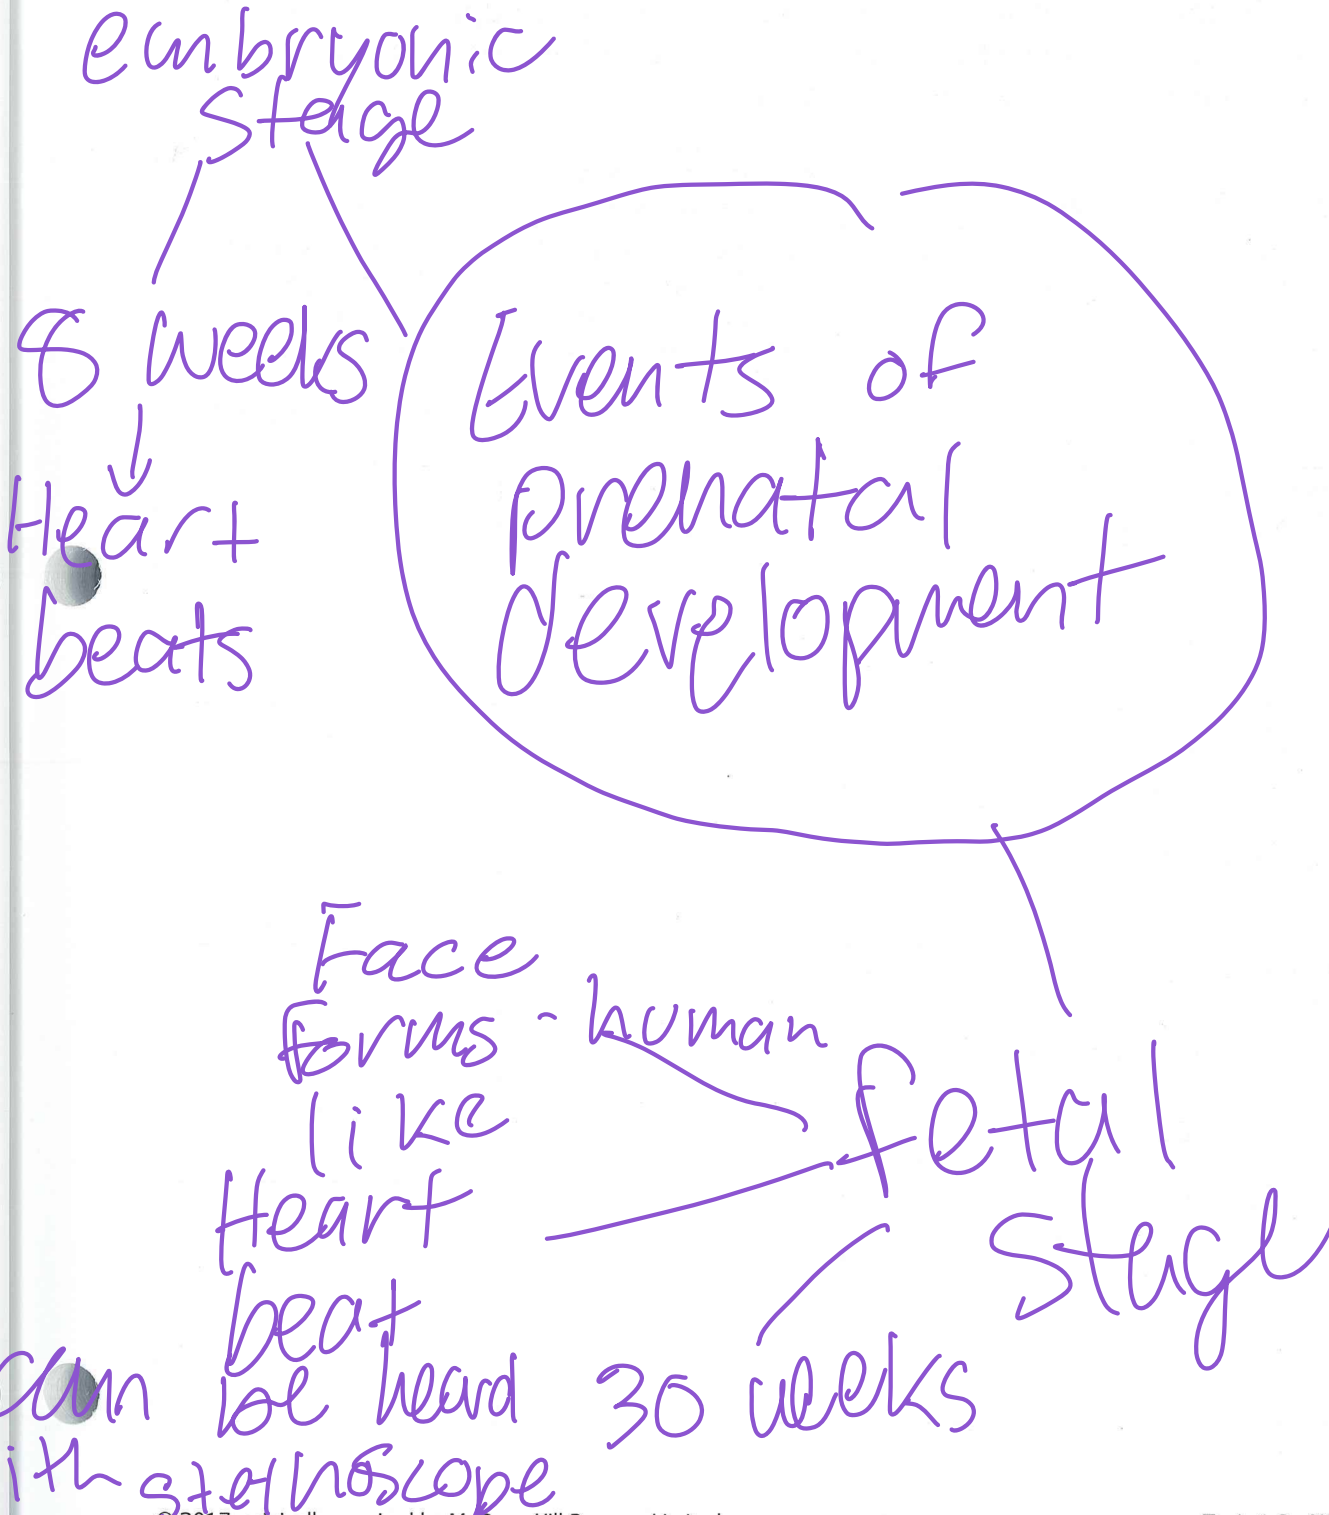 embryonic
stage
8 weeks
Heart
beats
Events of
prenatal
development
Face
forms - human
like
Heart
beat
can be heard
ith stethoscope
fetal
stage
30 weeks
© 2017